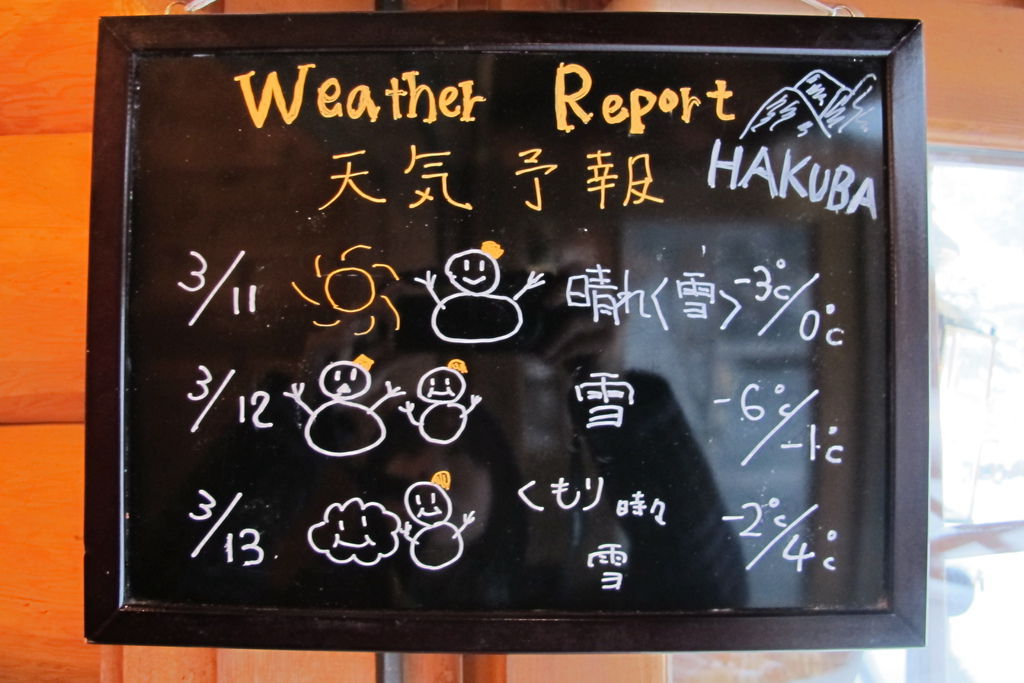 Weather Report
天気予報
HAKUBA
3/11 晴れ<雪> -3°c/0°c
3/12 雪 -6°c/-1°c
3/13 くもり時々 -2°c/4°c
雪